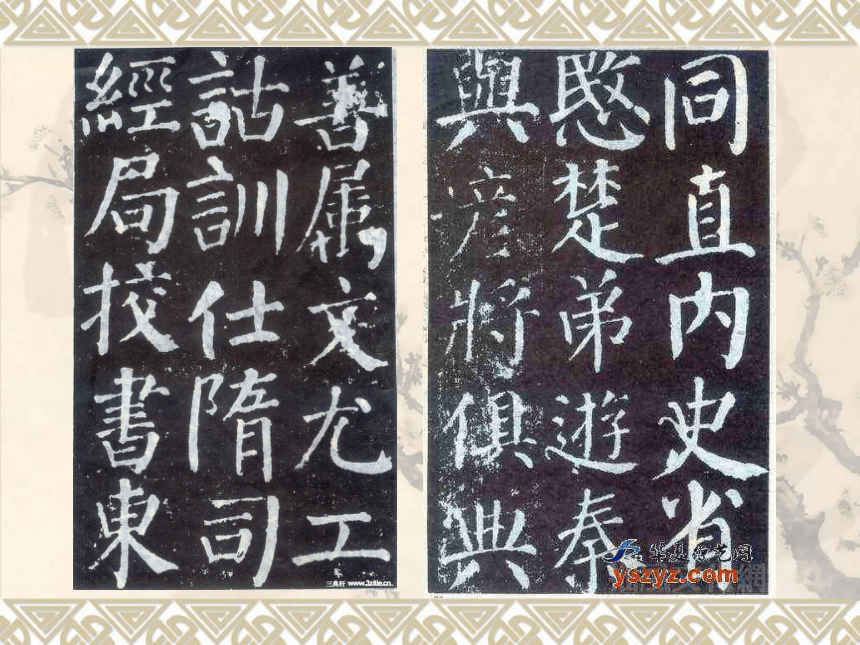 善属文尤工
詁訓仕隋司
經局挍書東
同直内史省
愍楚弟遊秦
與彦將俱典
www.3zitie.cn
yszyz.com